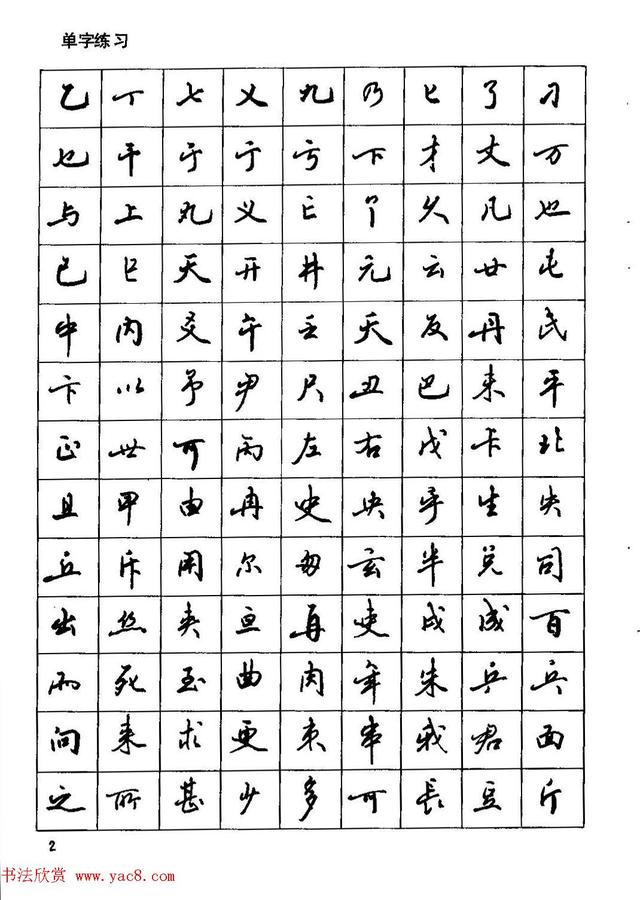 单字练习
乙 丁 七 乂 九 乃 匕 了 刁
也 干 于 亍 亏 下 才 丈 万
与 上 丸 义 亡 个 久 凡 也
已 巳 天 开 井 元 云 廿 屯
中 内 爻 午 壬 夭 反 丹 民
卞 以 予 尹 尺 丑 巴 未 平
正 世 可 丙 左 右 戊 卡 北
且 甲 由 冉 史 央 乎 生 失
丘 斥 用 尔 匆 玄 半 兑 司
出 丝 夹 亘 再 吏 戍 成 百
而 死 至 曲 肉 年 朱 乒 兵
向 来 求 更 束 串 我 君 面
之 所 甚 少 多 可 長 豆 斤
2
书法欣赏 www.yac8.com